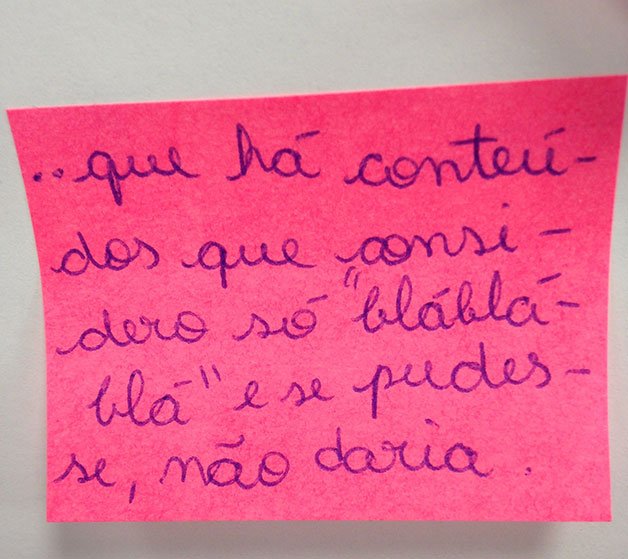 ..que há conteú-
dos que consi-
dero só "bláblá-
blá" e se pudes-
se, não daria.